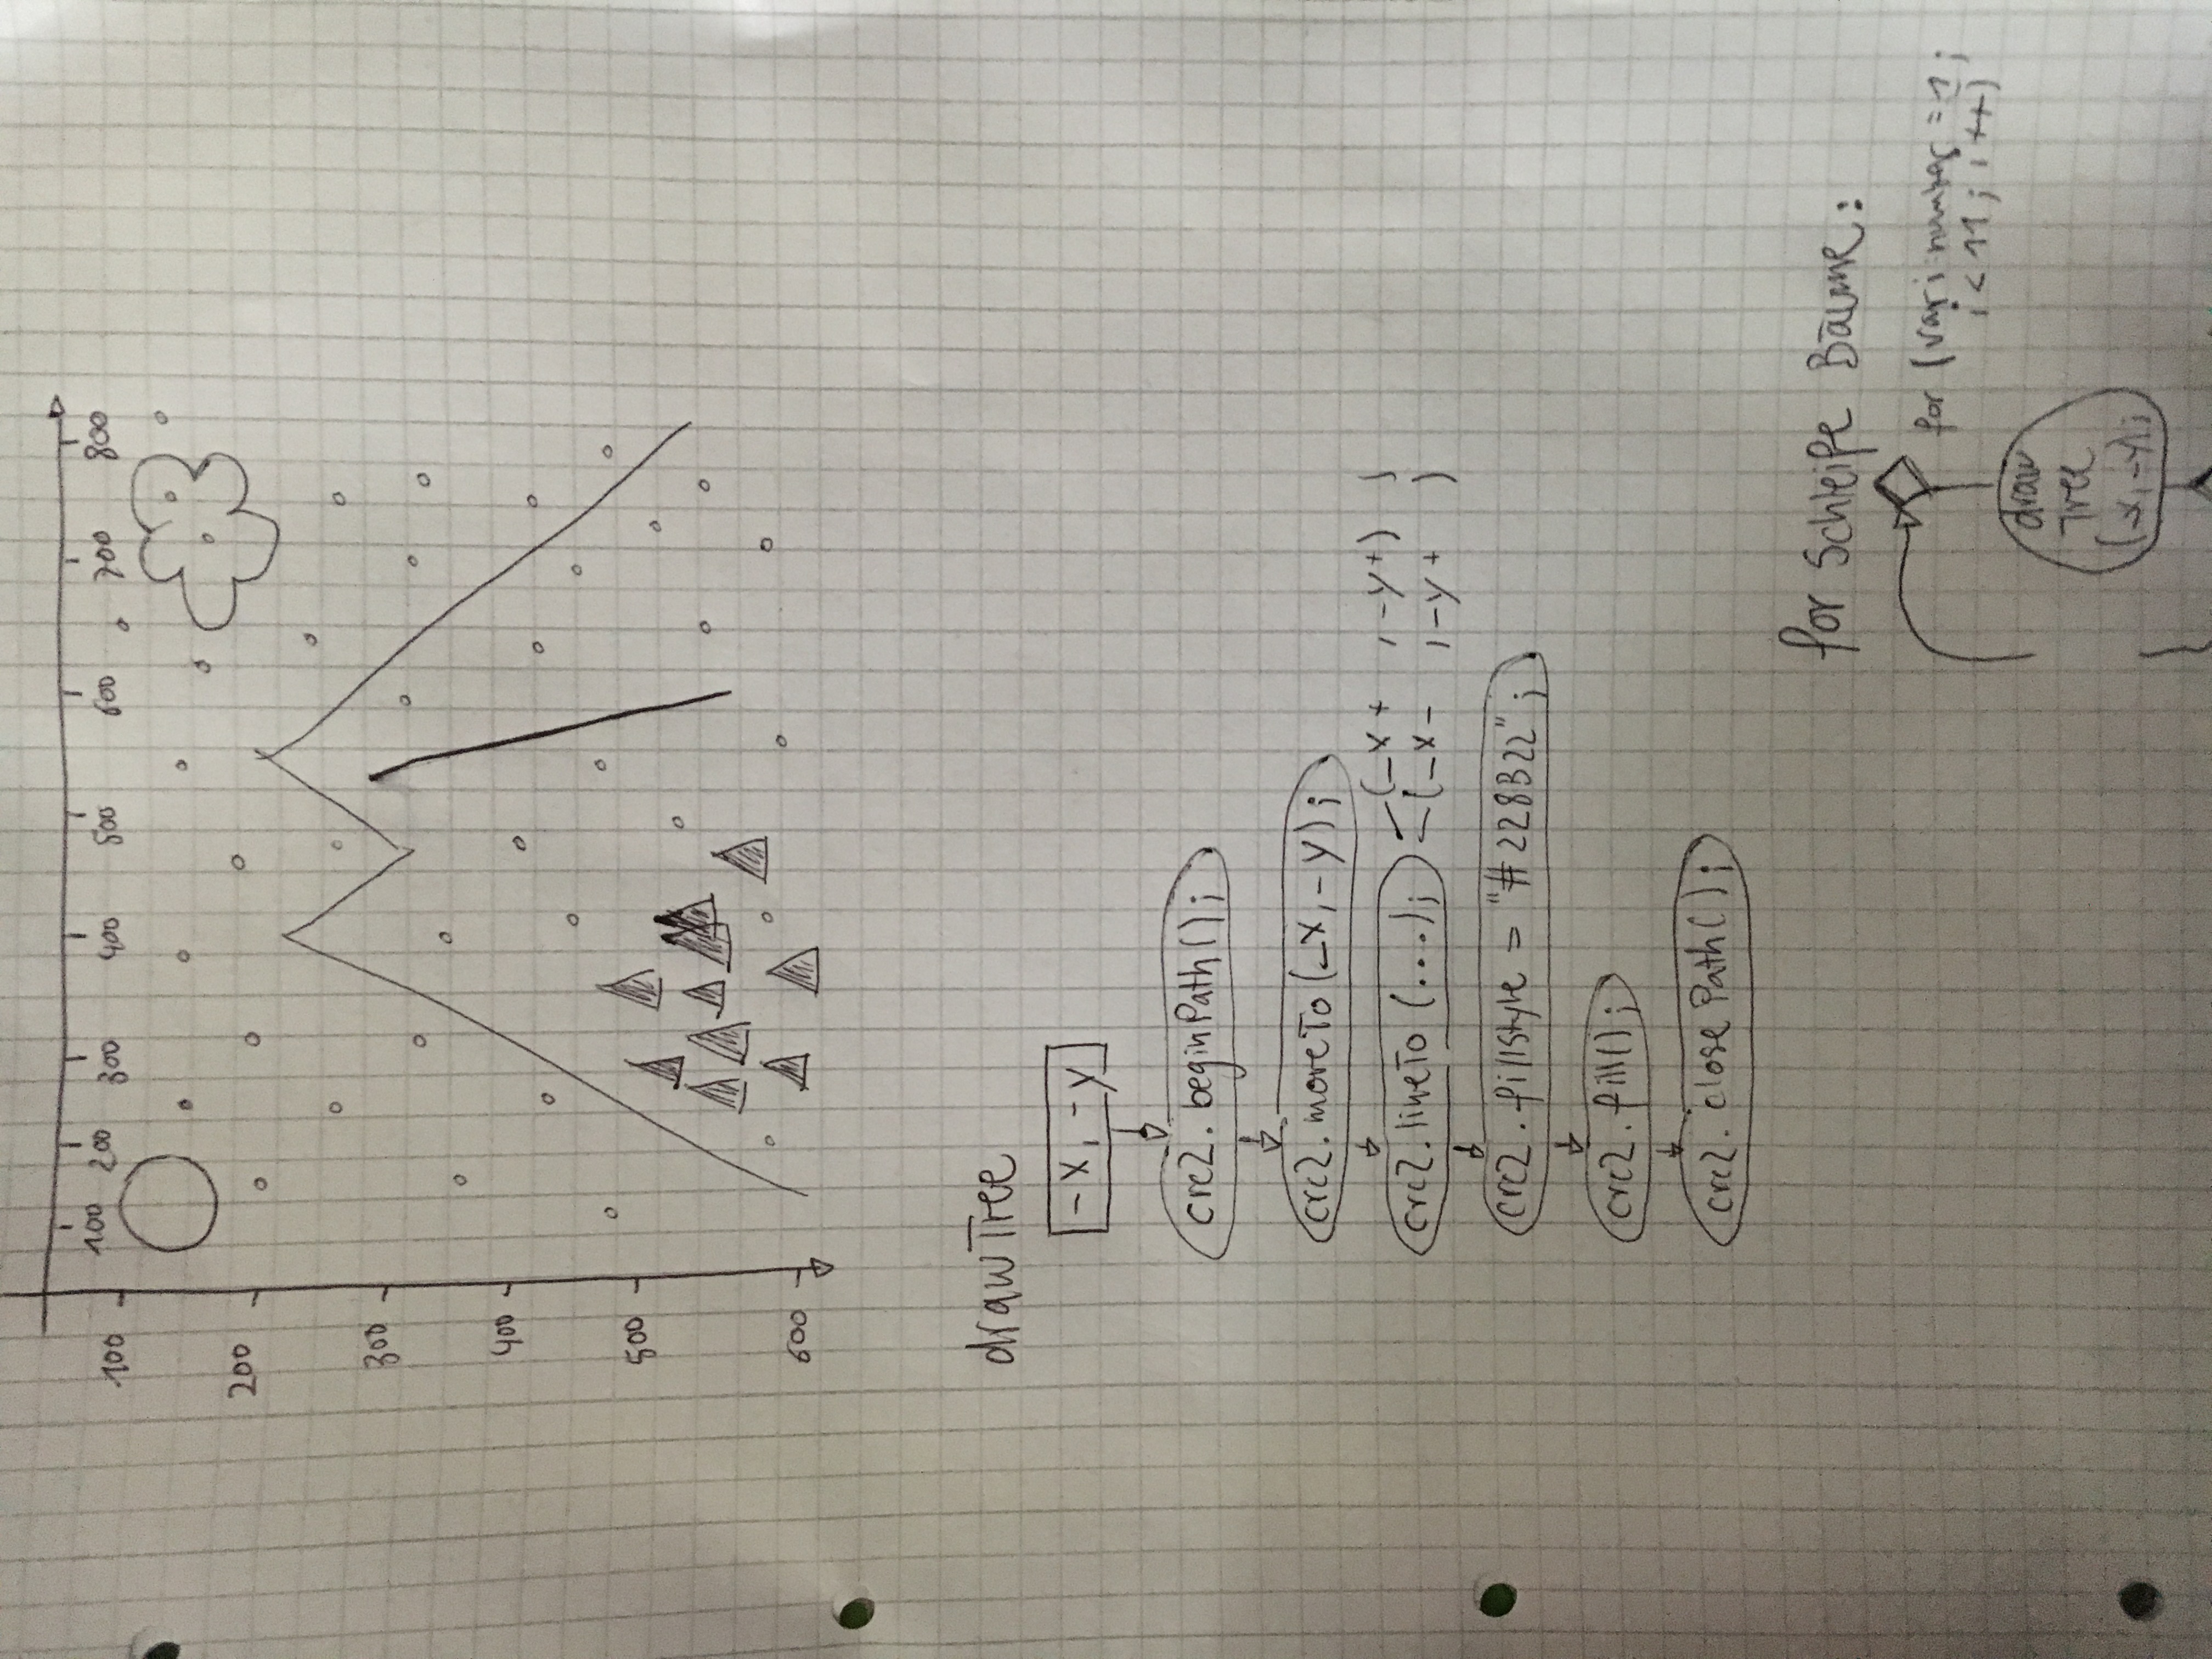 100 200 300 400 500 600 700 800
100
200
300
400
500
600
drawTree
_x, _y
crc2.beginPath();
crc2.moveTo(_x, _y);
crc2.lineTo(...);
(_x + , _y +) ;
(_x - , _y + )
crc2.fillStyle = "#228B22";
crc2.fill();
crc2.closePath();
for Schleife Bäume:
for (var i number = 1;
i < 11; i++)
draw
Tree
(_x, _y);